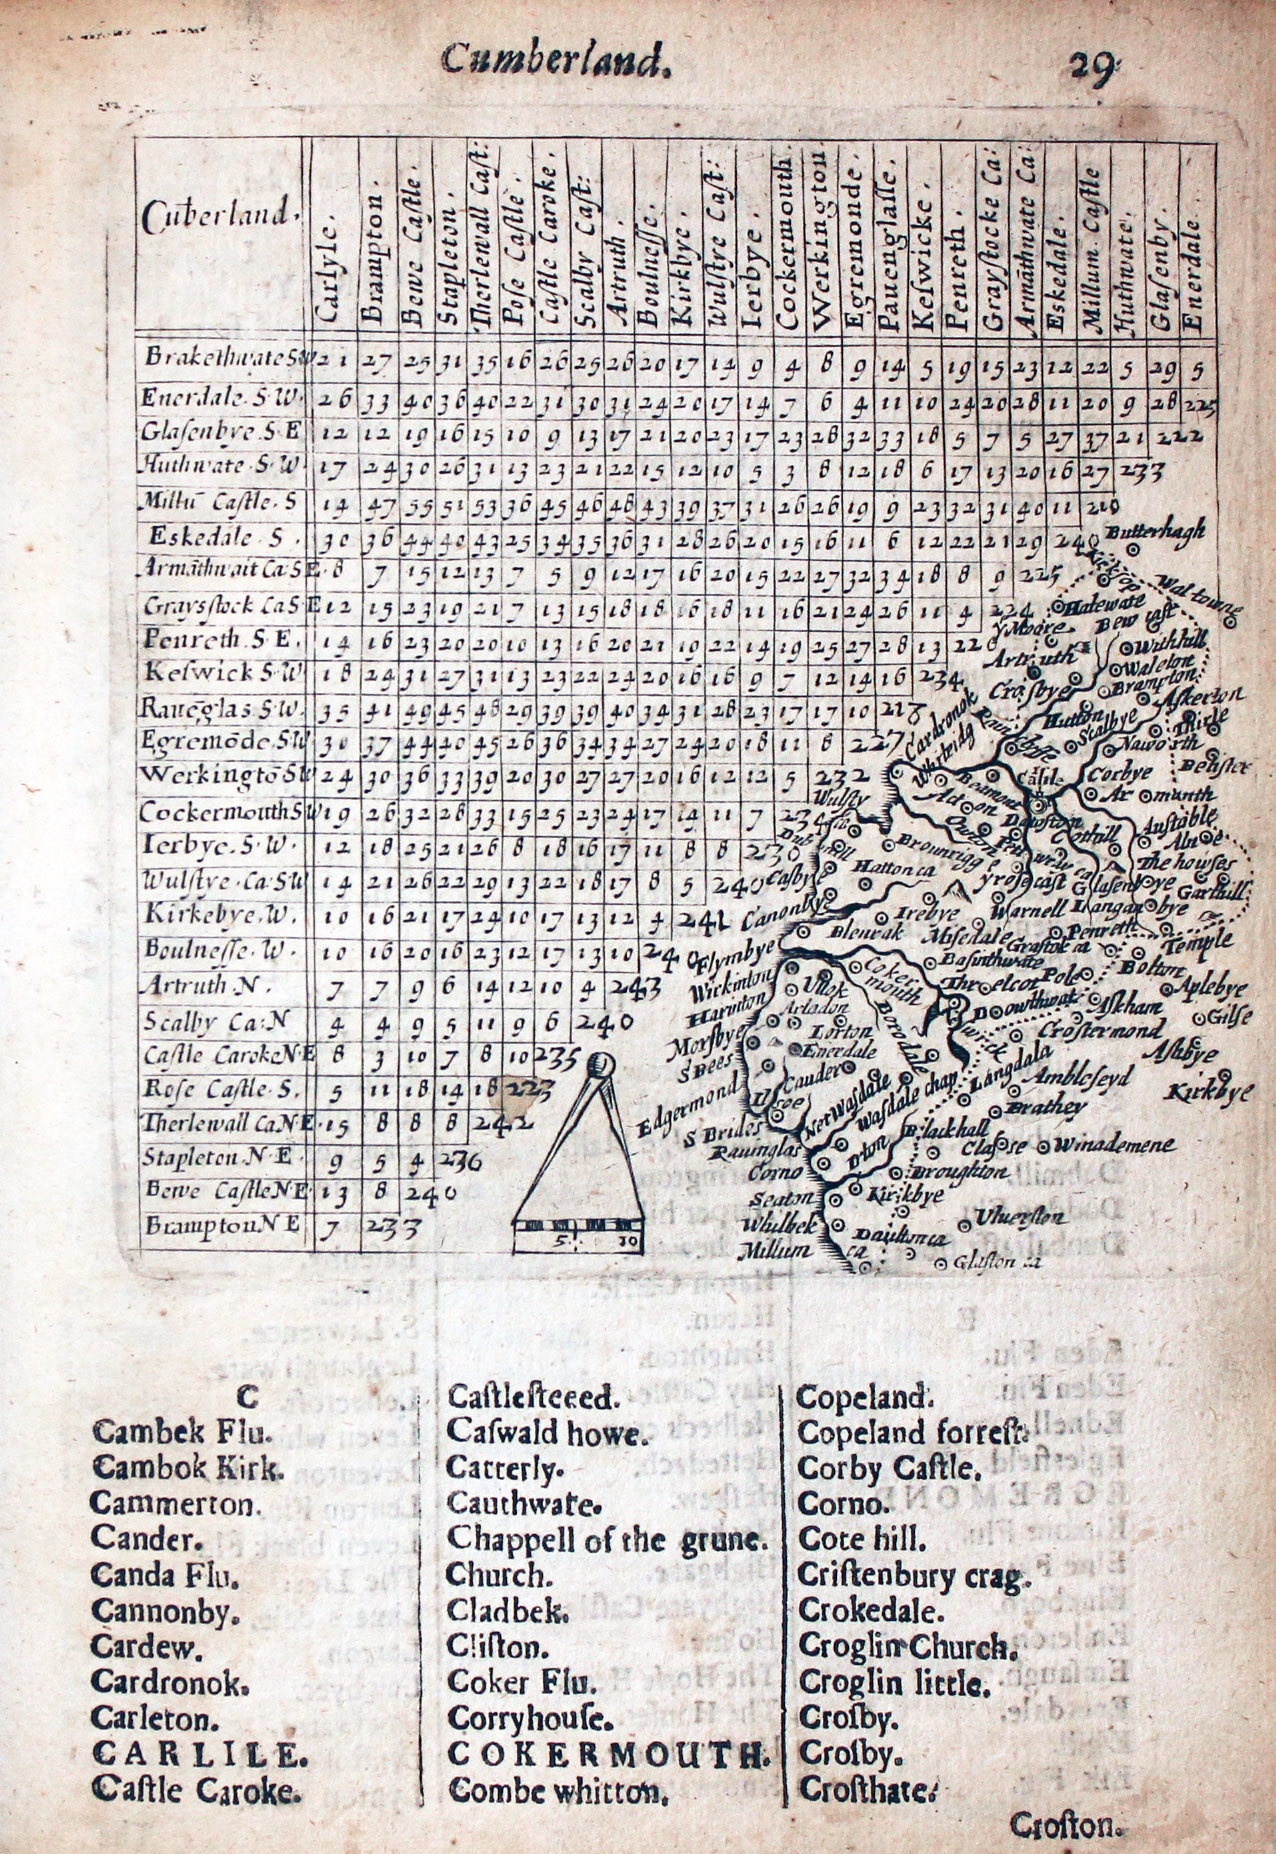 Cumberland. 29
Cūberland.
Carlyle.
Brampton.
Bewe Caſtle.
Stapleton.
Therlewall Caſt:
Poſe Caſtle.
Caſtle Caroke.
Scalby Caſt:
Artruth.
Boulneſſe.
Kirkbye.
Wulſtye Caſt:
Ierbye.
Cockermouth.
Werkington.
Egremonde.
Pauenglaſſe.
Keſwicke.
Penreth.
Grayſtocke Ca:
Armāthwate Ca:
Eskedale.
Millum Caſtle
Huthwate.
Glaſenby.
Enerdale.
Brakethwate S W 21 27 25 31 35 16 26 25 26 20 17 14 9 4 8 9 14 5 19 15 23 12 22 5 29 5
Enerdale. S. W. 26 33 40 36 40 22 31 30 31 24 20 17 14 7 6 4 11 10 24 20 28 11 20 9 28 225
Glaſenbye. S. E 12 12 19 16 15 10 9 13 17 21 20 23 17 23 28 32 33 18 5 7 5 27 37 21 222
Huthwate. S. W. 17 24 30 26 31 13 23 21 22 15 12 10 5 3 8 12 18 6 17 13 20 16 27 233
Millū Caſtle. S 14 47 55 51 53 36 45 46 48 43 39 37 31 26 26 19 9 23 32 31 40 11 210
Eskedale. S. 30 36 44 40 43 25 34 35 36 31 28 26 20 15 16 11 6 12 22 21 29 240
Armāthwait Ca: S E. 8 7 15 12 13 7 5 9 12 17 16 20 15 22 27 32 34 18 8 9 225
Graysſtock Ca S E 12 15 23 19 21 7 13 15 18 18 16 18 11 16 21 24 26 11 4 224
Penreth. S. E. 14 16 23 20 20 10 13 16 20 21 19 22 14 19 25 27 28 13 220
Keſwick. S. W. 18 24 31 27 31 13 23 22 24 20 16 16 9 7 12 14 16 234
Raueglas. S. W. 35 41 49 45 48 29 39 39 40 34 31 28 23 17 17 10 218
Egremōde. S. W. 30 37 44 40 45 26 36 34 34 27 24 20 18 11 8 227
Werkingtō S W 24 30 36 33 39 20 30 27 27 20 16 12 12 5 232
Cockermouth S W 19 26 32 28 33 15 25 23 24 17 14 11 7 234
Ierbye. S. W. 12 18 25 21 26 8 18 16 17 11 8 8 230
Wulſtye. Ca: S W 14 21 26 22 29 13 22 18 17 8 5 240
Kirkebye. W. 10 16 21 17 24 10 17 13 12 4 241
Boulneſſe. W. 10 16 20 16 23 12 17 13 10 240
Artruth. N. 7 7 9 6 14 12 10 4 243
Scalby Ca: N 4 4 9 5 11 9 6 240
Caſtle Caroke. N. E 8 3 10 7 8 10 235
Roſe Caſtle. S. 5 11 18 14 18 223
Therlewall Ca. N. E. 15 8 8 8 242
Stapleton. N. E. 9 5 4 236
Bewe Caſtle N. E. 13 8 240
Brampton N E 7 233
5 10
Butterhagh
Kirksop
Waltowne
Hatewate
Bew caſt
Moore
Withhill
Artruth
Waleton
Brampton
Croſbye
Askerton
Cardronok
Hutton
Scalbye
Thirle
Naworth
Whitridg
Corbye
Beliſter
Beamont
Acton
Armanth
Wulſty
Dawſton
Cothill
Auſtable
Brounrigge
The howſes
Hattonca
Caſbye
Garthill
Glaſenbye
Canonbye
Irebye
Warnell
Langanbye
Blenrak
Miſedale
Penreth
Graſtok ca
Temple
Flymbye
Baſinthwate
Bolton
Wickinton
Coker mouth
Threlcot
Pole
Aplebye
Harinton
Ullok
Doowthwat
Aſkham
Gilſe
Arladon
Moreſbye
Lorton
Borodale
Croſtermond
Aſhbye
S Bees
Enerdale
Langdala
Cauder
Ambleſeyd
Kirkbye
Edgermond
Netwaſdale
Waſdale chap
Brathey
S Brides
Blackhall
Claſſe
Winademene
Rauinglas
Broughton
Corno
Seaton
Kirkbye
Ulverſton
Whilbek
Millum ca
Glaſton ca
C
Cambek Flu.
Cambok Kirk.
Cammerton.
Cander.
Canda Flu.
Cannonby.
Cardew.
Cardronok.
Carleton.
CARLILE.
Caſtle Caroke.
Caſtleſteeed.
Caſwald howe.
Catterly.
Cauthwate.
Chappell of the grune.
Church.
Cladbek.
Cliſton.
Coker Flu.
Corryhouſe.
COKERMOUTH.
Combe whitton.
Copeland.
Copeland forreſt.
Corby Caſtle.
Corno.
Cote hill.
Criſtenbury crag.
Crokedale.
Croglin Church.
Croglin little.
Croſby.
Croſby.
Croſthate.
Croſton.